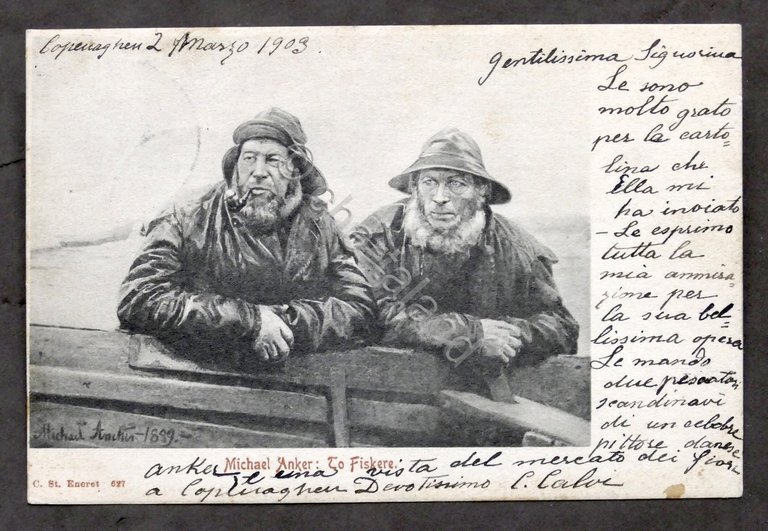 Copenaghen 2 Marzo 1903.
Gentilissima Signorina
Le sono
molto grato
per la carto=
lina che
Ella mi
ha inviato
- Le esprimo
tutta la
mia ammira
zione per
la sua bel-
lissima opera
Le mando
due pescatori
scandinavi
di un celebre
pittore danese
Michael Ancher 1889.
Michael Anker: To Fiskere.
anker e una vista del mercato dei fiori
a Copenaghen Devotissimo C. Calvi
C. St. Eneret 627